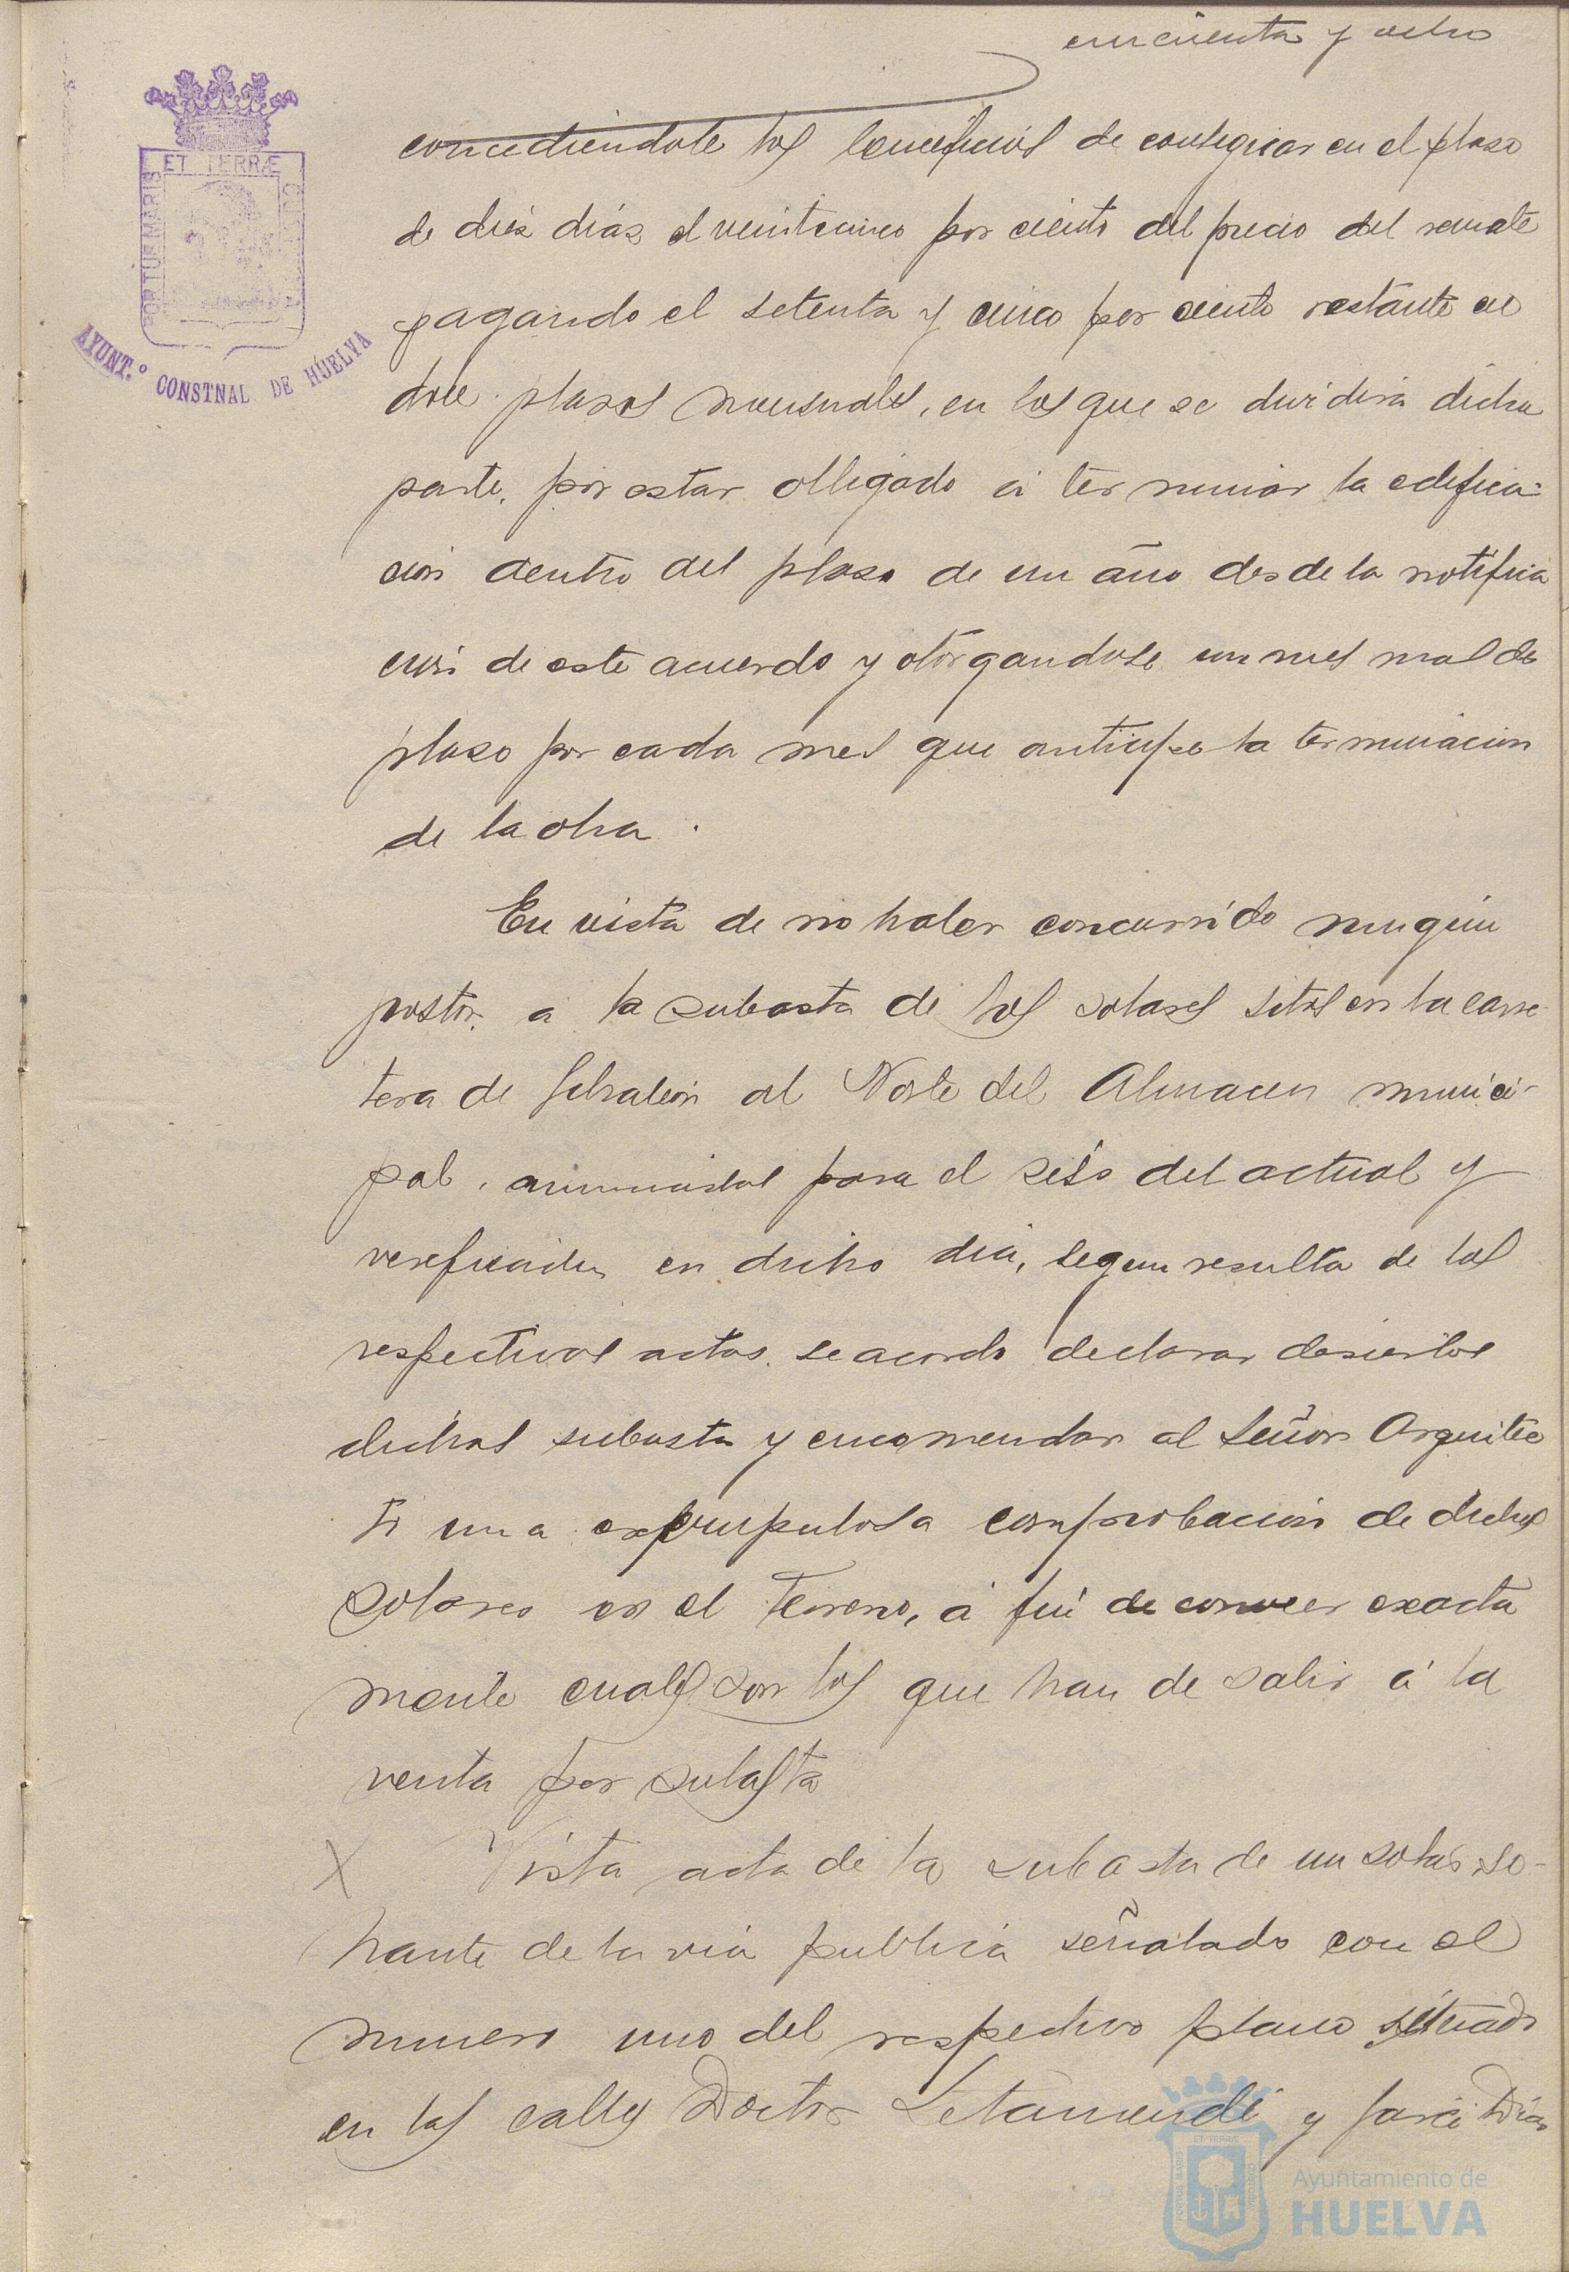 cincuenta y ocho
ET TERRÆ
PORTUS MARIS
AYUNT.º CONSTNAL DE HUELVA
concediendole los beneficios de consignar en el plazo
de dies dias el veinticinco por ciento del precio del remate
pagando el setenta y cinco por ciento restante en
doce plazos mensuales, en los que se dividirá dicha
parte, por estar obligado á terminar la edifica-
cion dentro del plazo de un año desde la notifica
cion de este acuerdo y otorgandose un mes mas de
plazo por cada mes que anticipe la terminacion
de la obra.
En vista de no haber concurrido ningun
postor a la subasta de los solares sitos en la carre-
tera de Gibraleon al Norte del Almacen munici-
pal, anunciadas para el seis del actual y
verificadas en dicho dia, segun resulta de las
respectivas actas se acordo declarar desiertas
dichas subasta y encomendar al Señor Arquitec
to una escrupulosa comprobacion de dichos
solares en el terreno, á fin de conocer exacta
mente cuales son los que han de salir á la
venta por subasta
X Vista acta de la subasta de un solar so-
brante de la via publica señalado con el
numero uno del respectivo plano situado
en las calles Doctor Letamendi y Garci Dias
ET TERRÆ
Ayuntamiento de
HUELVA